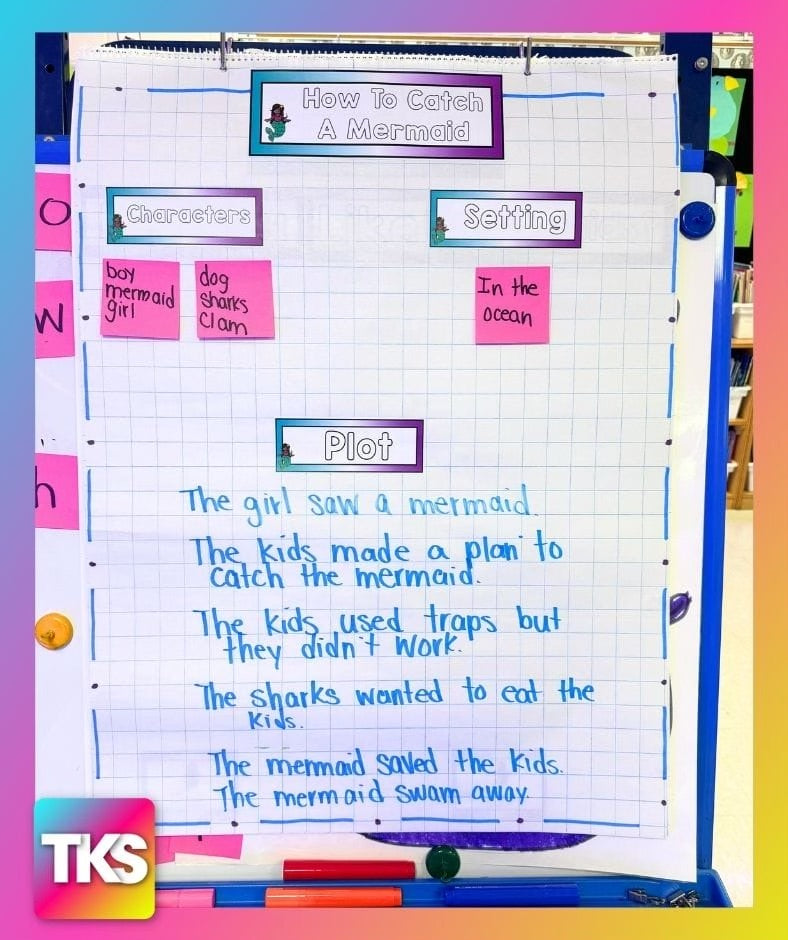 How To Catch
A Mermaid
Characters
Setting
boy
mermaid
girl
dog
sharks
clam
In the
ocean
Plot
The girl saw a mermaid.
The kids made a plan to
catch the mermaid.
The kids used traps but
they didn't work.
The sharks wanted to eat the
kids.
The mermaid saved the kids.
The mermaid swam away.
O
W
h
TKS